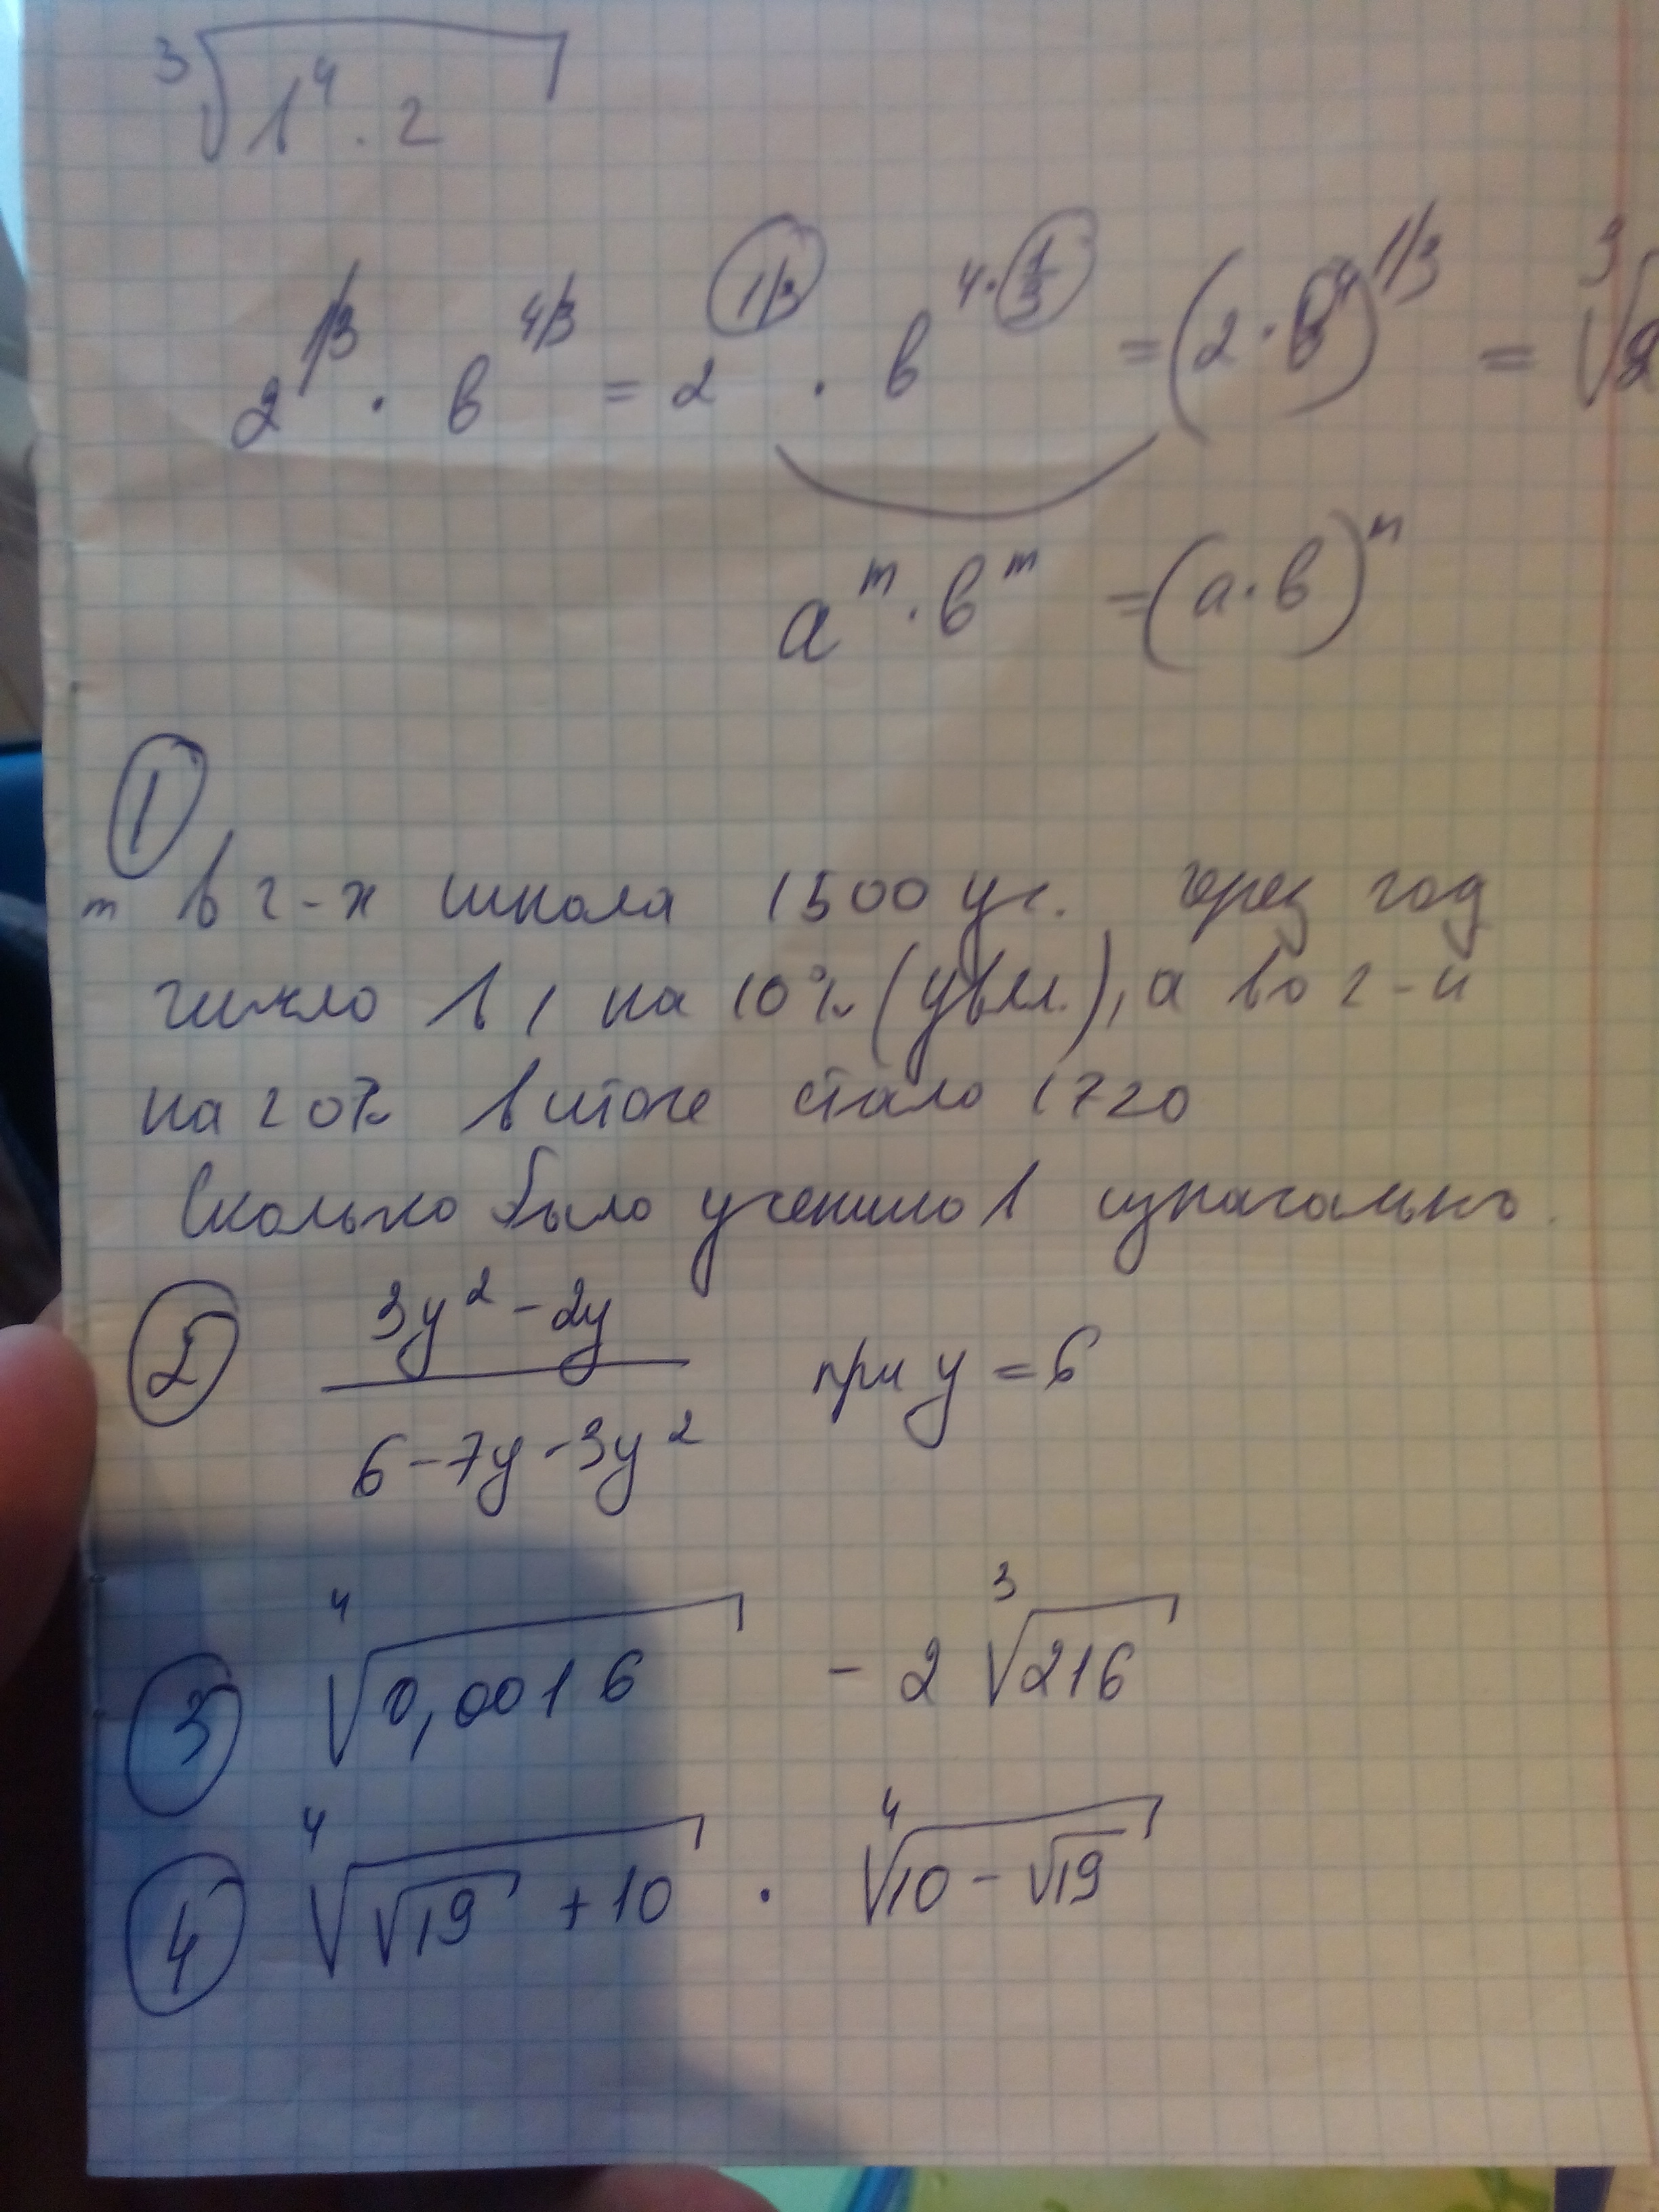 ∛(в⁴ · 2)
2^(1/3) · в^(4/3) = 2^(1/3) · в^(4·1/3) = (2 · в⁴)^(1/3) = ∛2
a^m · в^m = (a · в)^m
1
m в 2-х школа 1500 уч. через год
число в 1 на 10% (увел.), а во 2-й
на 20% в итоге стало 1720
Сколько было учеников изначально.
2 (3y² - 2y)/(6 - 7y - 3y²) при y = 6
3 ∜(0,0016) - 2 ∛(216)
4 ∜(√19 + 10) · ∜(10 - √19)